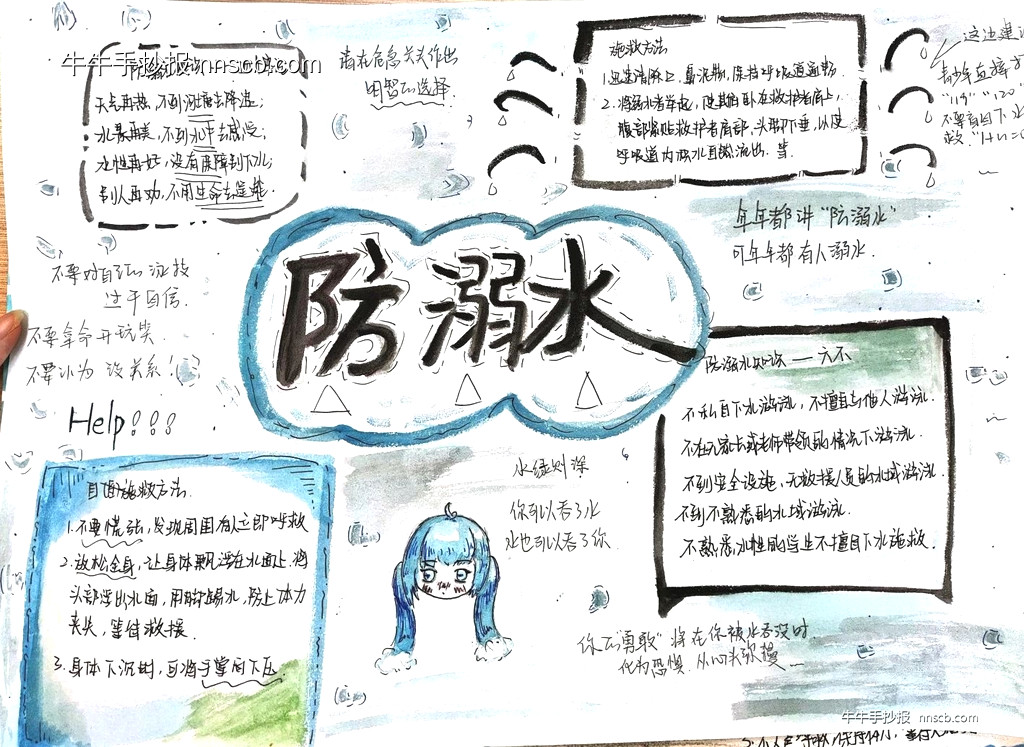 牛牛手抄报 nnscb.com
天气再热，不到河塘去降温；
水景再美，不到水中去感受；
水性再好，没有保障别下水；
别人再劝，不用生命去逞能
请在危急关头作出
明智的选择
施救方法
1.迅速清除口、鼻泥物，保持呼吸道通畅
2.将溺水者举起，使其俯卧在救护者肩上，
腹部紧贴救护者肩部，头脚下垂，以使
呼吸道内积水自然流出.等.
青少年直接
"119" "120"
不要盲目下水
救.
年年都讲"防溺水"
可年年都有人溺水.
不要对自己的泳技
过于自信.
不要拿命开玩笑.
不要以为没关系！
Help!!!
防溺水
防溺水知识——六不
不私自下水游泳，不擅自与他人游泳.
不在无家长或老师带领的情况下游泳.
不到安全设施，无救援人员的水域游泳
不到不熟悉的水域游泳.
不熟悉水性的学生不擅自下水施救.
自面施救方法.
1.不要慌张，发现周围有人立即呼救
2.放松全身，让身体飘浮在水面上，将
头部浮出水面，用脚踢水，防止体力
丧失，等待救援.
3.身体下沉时，可将手掌向下压
水绿则深
你可以吞了水
水也可以吞了你.
你的"勇敢"将在你被水吞没时
化为恐惧.从心头弥漫
牛牛手抄报 nnscb.com